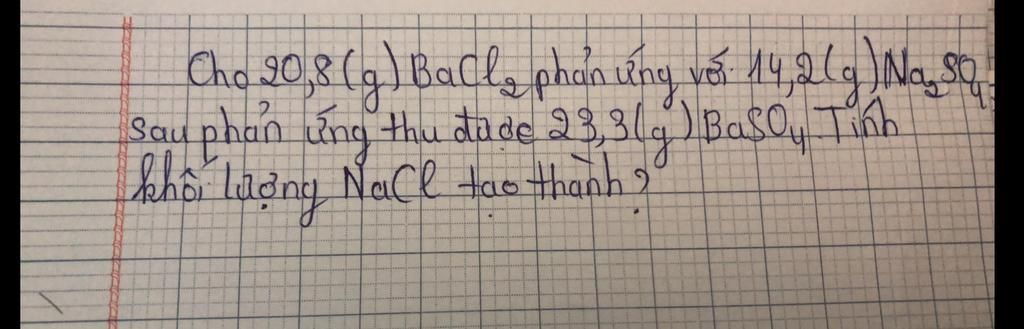 Cho 20,8(g) BaCl₂ phản ứng với 14,2(g) Na₂SO₄
sau phản ứng thu được 23,3(g) BaSO₄. Tính
khối lượng NaCl tạo thành?